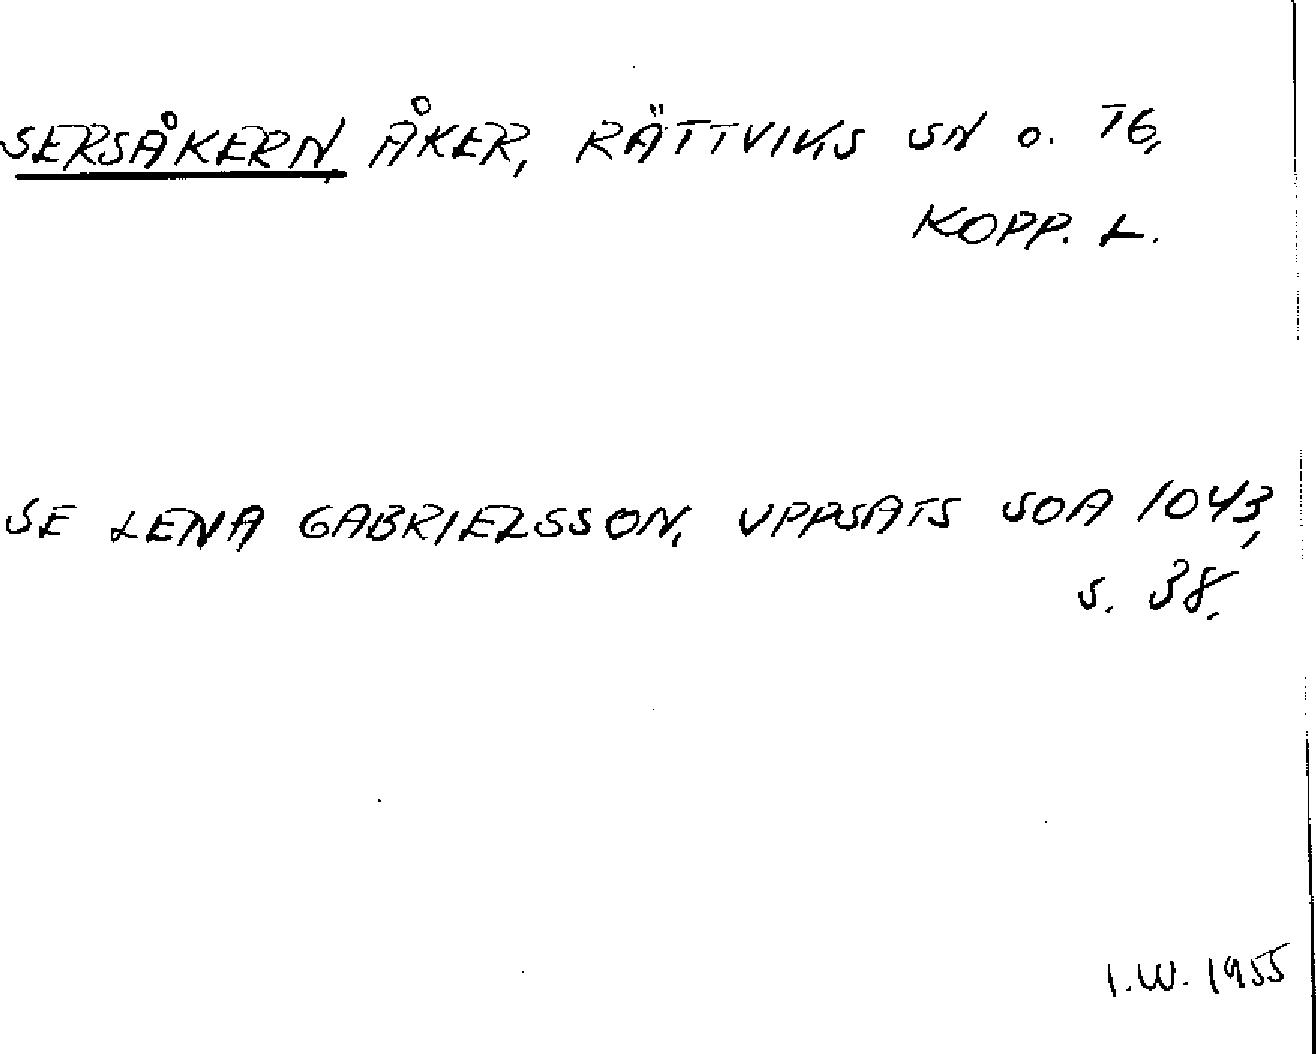 SERSÅKERN, ÅKER, RÄTTVIKS SN O. TG,
KOPP. L.
SE LENA GABRIELSSON, UPPSATS SOA 1043,
S. 38.
I.W. 1955